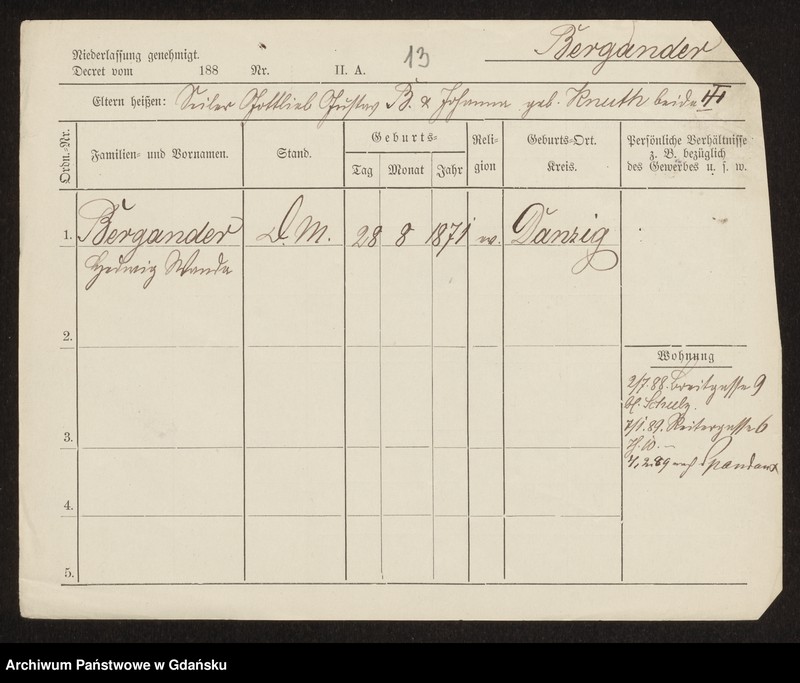 Bergander
Niederlassung genehmigt.
Decret vom 188 Nr. II. A. 13
Eltern heißen: Seiler Gottlieb Gustav B. & Johanna geb. Knuth beide
Ordn.-Nr.
Familien- und Vornamen.
Stand.
Geburts-
Tag
Monat
Jahr
Reli-
gion
Geburts-Ort.
Kreis.
Persönliche Verhältnisse
z. B. bezüglich
des Gewerbes u. s. w.
1. Bergander D. M. 28 8 1871 ev. Danzig
Hedwig Wanda
2.
Wohnung
2/7.88. Breitgasse 9
3.
7/1.89. Reitergasse 6
2.89 nach Spandau
4.
5.
Archiwum Państwowe w Gdańsku